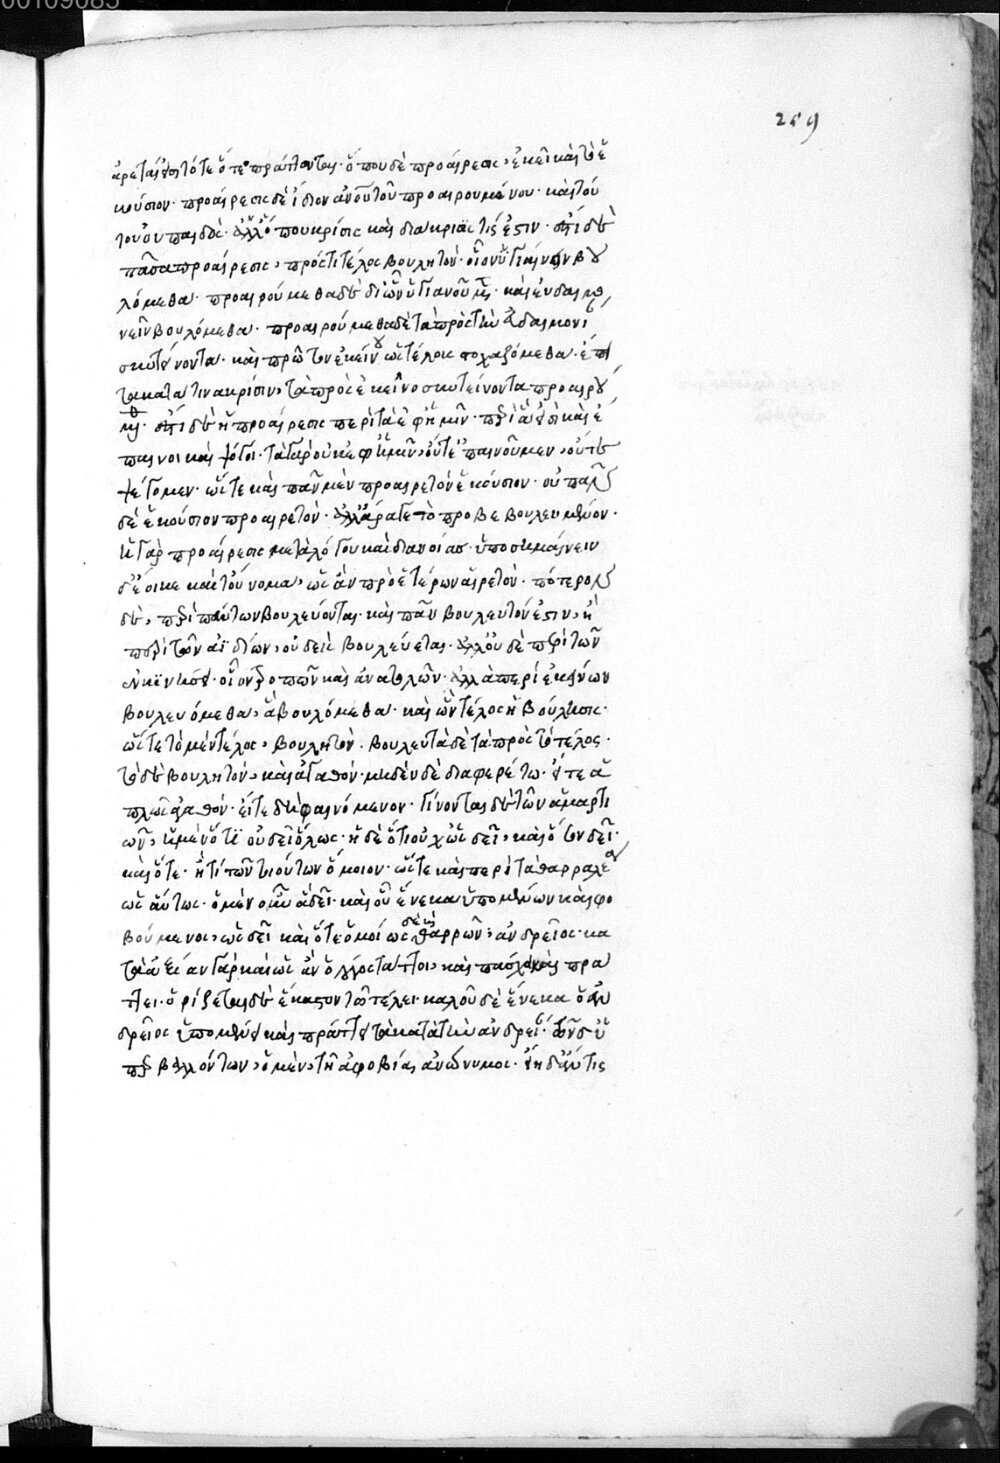 00109085
259
ἀρεταί εἰσι τότε ὅτε πράττονται· ὅπου δὲ προαίρεσις, ἐκεῖ καὶ τὸ ἑ
κούσιον· προαίρεσις δὲ ἴδιον ἀνου τοῦ προαιρουμένου· καὶ τού
του οὐ παιδὸς· ἀλλ' ὅπου κρίσις καὶ διακρίσις τίς ἐστιν· ἐπεὶ δὲ
πᾶσα προαίρεσις, πρός τι τέλος βουλητόν· οἷον ὑγιαίνειν βου
λόμεθα· προαιρούμεθα δὲ δι' ὧν ὑγιανοῦμεν· καὶ εὐδαιμο
νεῖν βουλόμεθα· προαιρούμεθα δὲ τὰ πρὸς τὴν εὐδαιμονί
συντείνοντα· καὶ πρῶτον ἐκείνου ὡς τέλους στοχαζόμεθα· ἔπει
τα κατά τινα κρίσιν, τὰ πρὸς ἐκεῖνο συντείνοντα προαιρού
μεθα· ἐπεὶ δὲ ἡ προαίρεσις περὶ τὰ ἐφ' ἡμῖν· περὶ ἃ εἰσὶ καὶ ἔ
παινοι καὶ ψόγοι· τὰ γὰρ οὐκ ἐφ' ἡμῖν, οὔτε ἐπαινοῦμεν, οὔτε
ψέγομεν· ὥστε καὶ πᾶν μὲν προαιρετὸν ἑκούσιον· οὐ πᾶν
δὲ ἑκούσιον προαιρετόν· ἀλλ' ἆρά γε τὸ προβεβουλευμένον·
ἡ γὰρ προαίρεσις μετὰ λόγου καὶ διανοίας· ὑποσημαίνειν
δ' ἔοικε καὶ τοὔνομα, ὡς ἂν πρὸ ἑτέρων αἱρετόν· πότερον
δὲ, περὶ πάντων βουλεύονται· καὶ πᾶν βουλευτόν ἐστιν, ἢ
περὶ τῶν ἀϊδίων, οὐδεὶς βουλεύεται· ἀλλ' οὐδὲ περὶ τῶν
ἐν κινήσει· οἷον τροπῶν καὶ ἀνατολῶν· ἀλλὰ περὶ ἐκείνων
βουλευόμεθα, ἃ βουλόμεθα· καὶ ὧν τέλος ἡ βούλησις·
ὥστε τὸ μὲν τέλος, βουλητόν· βουλευτὰ δὲ τὰ πρὸς τὸ τέλος·
τὸ δὲ βουλητόν, καὶ ἀγαθόν· μηδὲν δὲ διαφερέτω· εἴτε ἁ
πλῶς ἀγαθόν· εἴτε δὴ φαινόμενον· γίνονται δὲ τῶν ἁμαρτι
ῶν, ἡ μὲν ὅτι οὐ δεῖ ὅλως· ἡ δὲ ὅτι οὐχ ὡς δεῖ, καὶ ὅτον δεῖ·
καὶ ὅτε· ἤ τι τῶν τοιούτων ὅμοιον· ὥστε καὶ περὶ τὰ θαρραλέα
ὡς αὕτως· ὁ μὲν οὖν ἃ δεῖ· καὶ οὗ ἕνεκα ὑπομένων καὶ φο
βούμενος, ὡς δεῖ καὶ ὅτε ὁμοίως δὲ καὶ θαρρῶν, ἀνδρεῖος· κα
τ' ἀξίαν γὰρ καὶ ὡς ἂν ὁ λόγος τάττοι, καὶ πάσχει καὶ πρά
ττει· ὁρίζεται δὲ ἕκαστον τῷ τέλει· καλοῦ δὲ ἕνεκα ὁ ἀν
δρεῖος ὑπομένει καὶ πράττει τὰ κατὰ τὴν ἀνδρείαν· τῶν δ' ὑ
περβαλλόντων, ὁ μὲν, τῇ ἀφοβίᾳ, ἀνώνυμος· εἴη δ' ἄν τις